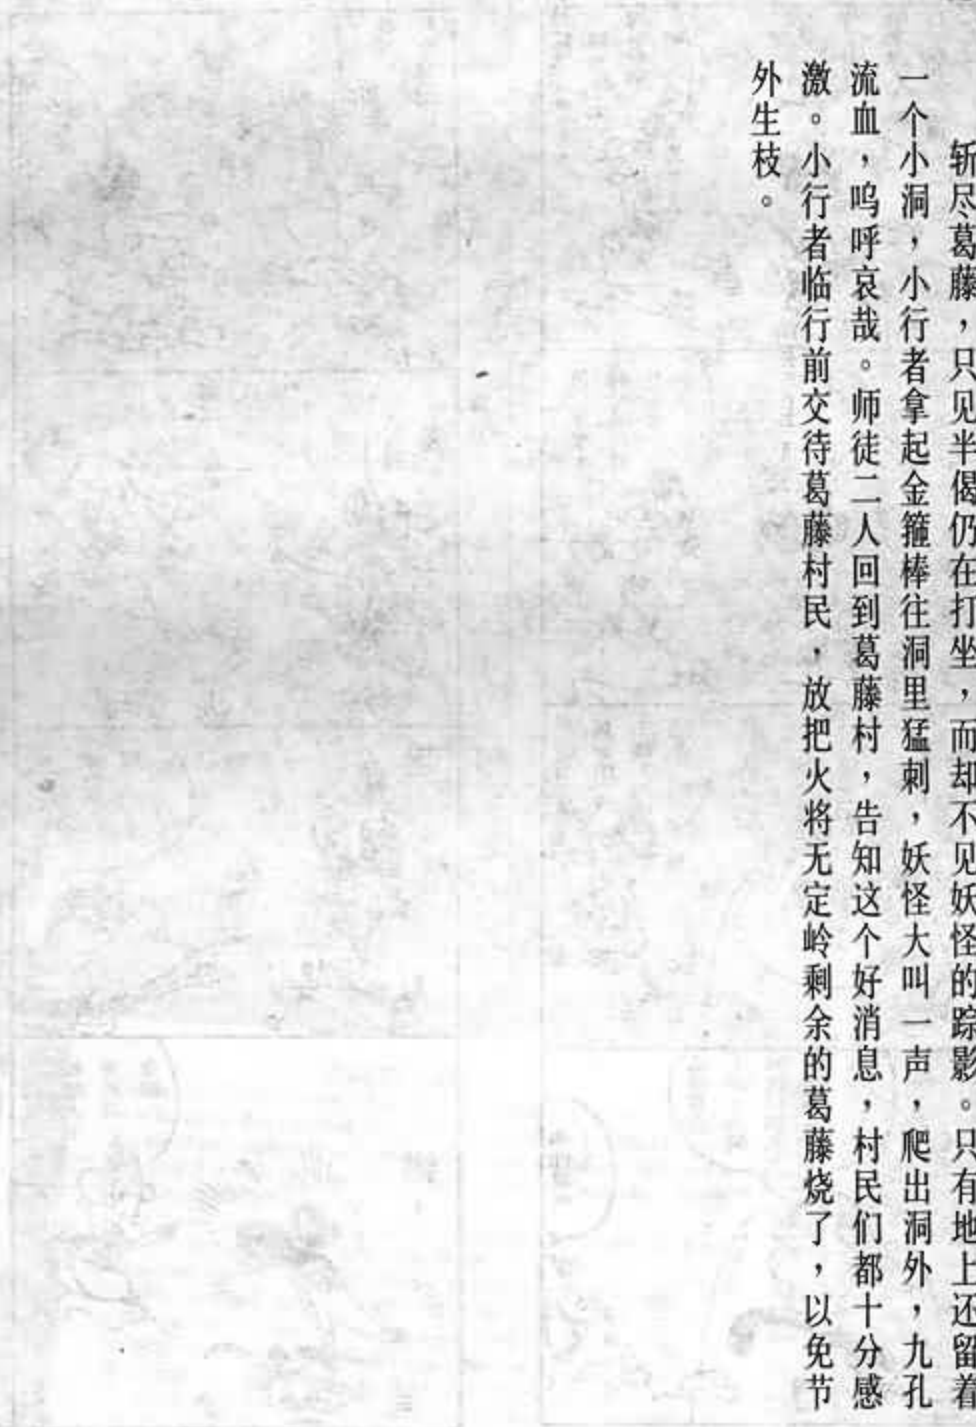 斩尽葛藤，只见半偈仍在打坐，而却不见妖怪的踪影。只有地上还留着
一个小洞，小行者拿起金箍棒往洞里猛刺，妖怪大叫一声，爬出洞外，九孔
流血，呜呼哀哉。师徒二人回到葛藤村，告知这个好消息，村民们都十分感
激。小行者临行前交待葛藤村民，放把火将无定岭剩余的葛藤烧了，以免节
外生枝。